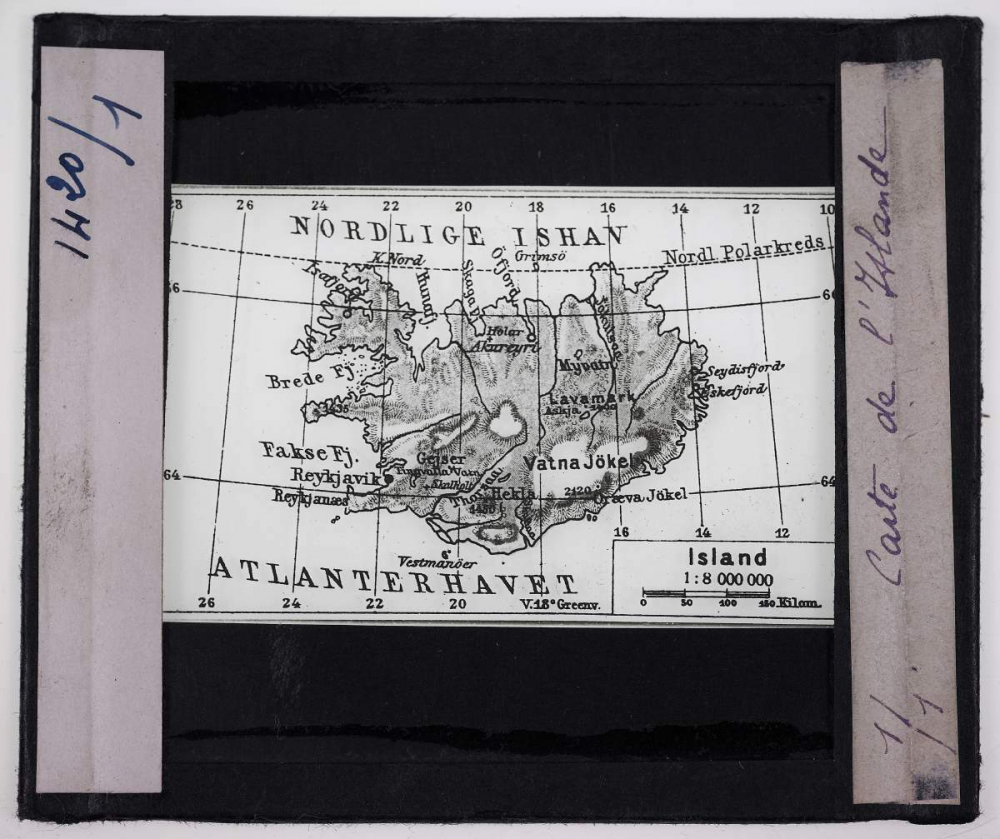 1420/1
28 26 24 22 20 18 16 14 12 10
NORDLIGE ISHAV
Grimsö
Nordl. Polarkreds
K. Nord
Isafjord
Hunafj.
Skagafj.
Öfjord
66
Jökulsaa
Holar
Akureyri
Myvatn
Seydisfjord
Eskefjörd
Brede Fj.
Lavamark
Askja
1435
Fakse Fj.
Geiser
Vatna Jökel
Reykjavik
Tingvalla Vatn
64
64
Skalholt
Reykjanæs
Thorsaa
Hekla
2120
Öræva Jökel
Vestmanöer
16 14 12
ATLANTERHAVET
Island
1:8 000 000
0 50 100 150 Kilom.
26 24 22 20 V. 18° Greenv.
Carte de l'Islande
1/1